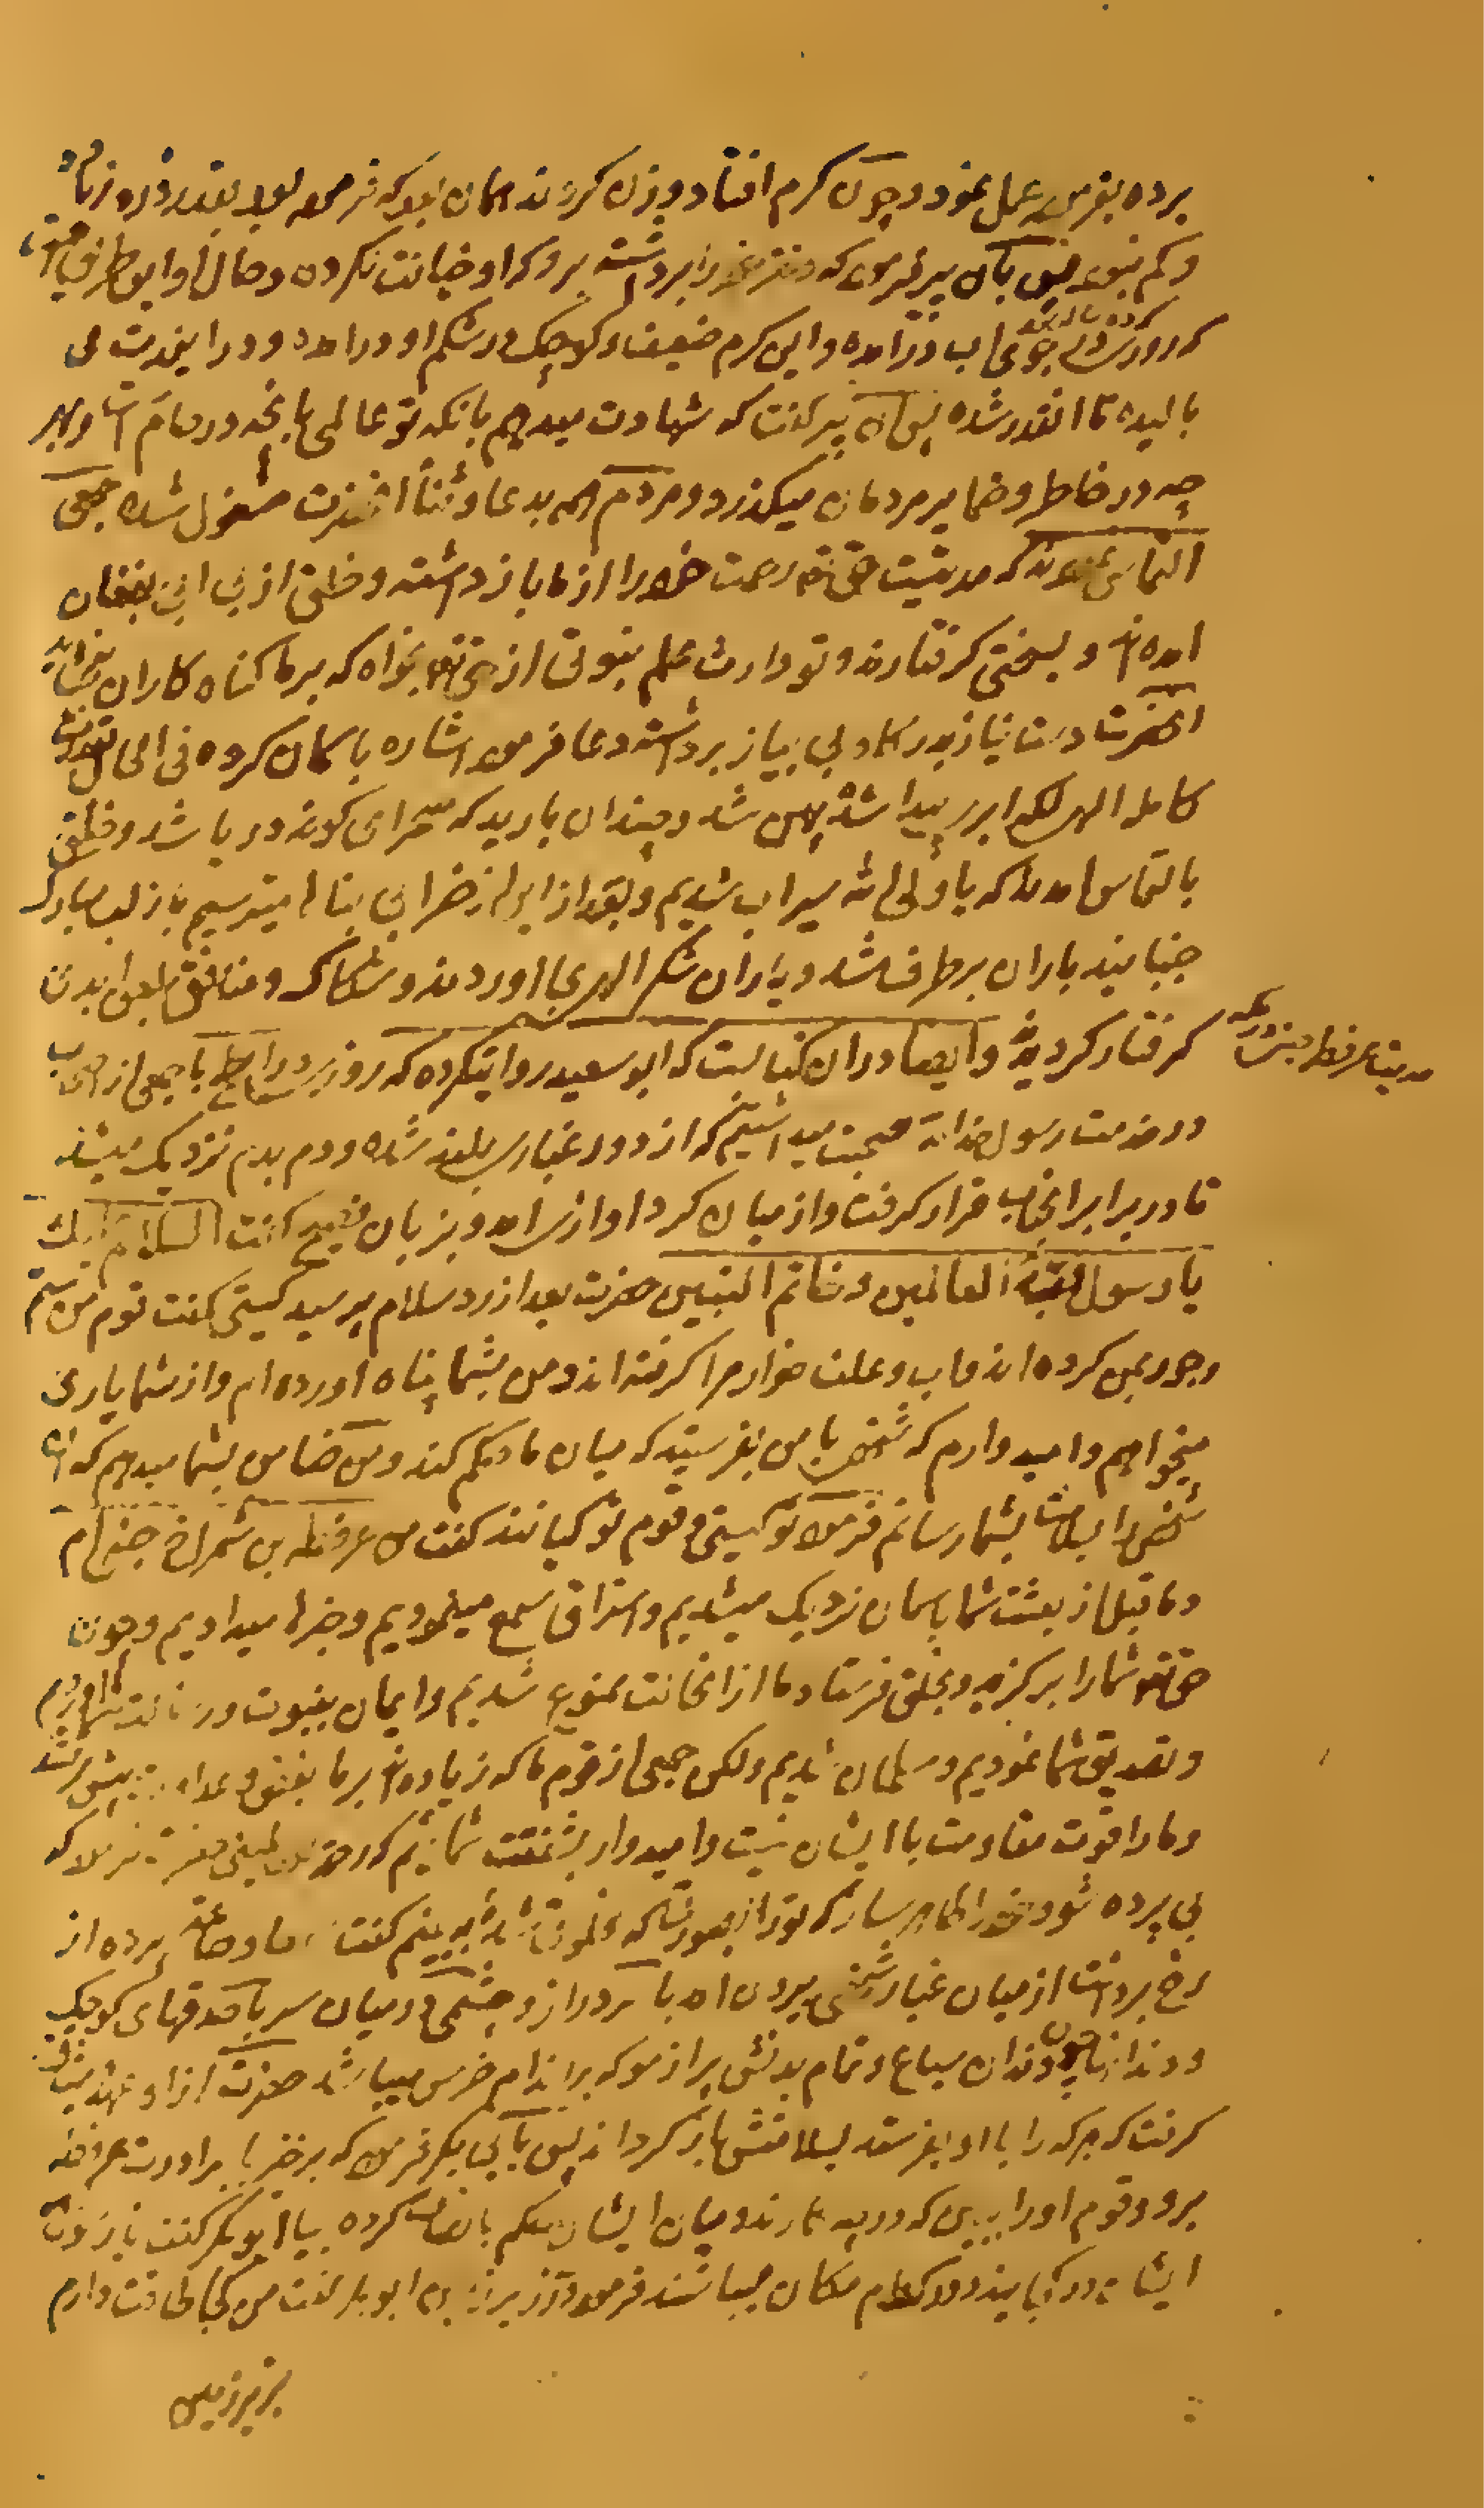 برده بفرموده عمل نمود و چون کرم افتاد وزن کردند همان بود که فرموده بود بقدر ذره زیاد
و کم نبود پس بآن پیر فرمود که دختر خود را برداشته برو که او خیانت نکرده و حال او این طریق است
که روزی در جوی اب درآمده و این کرم ضعیف و کوچک در شکم او درامده و در اینمدت می
بالیده تا انقدر شده پس آن پیر گفت که شهادت میدهم بانکه تو عالمی بانچه در رحام است و بهر
چه در خاطر و ضمایر مردمان میگذرد و مردم همه بدعا و ثنا انحضرت مشغول شده جمعی
التماس نمودند که مدتیست حق تع رحمت خود را از ما باز داشته و خلق از بی ابی بفغان
امده اند و بسختی گرفتارند و تو وارث علم نبوتی از حق تع بخواه که بر ما گناه کاران ببخشاید
انحضرت دست نیاز بدرگاه بی نیاز برداشته دعا فرمود اشاره باسمان کرده فی الحال بقدرت
کامله الهی لکه ابر پیدا شد پهن شد و چندان بارید که صحرای کوفه دریا شد و خلق
بالتماس امدند که یا ولی الله سیراب شدیم و بعد از این از خرابی بناها میترسیم باز لب مبارک
جنبانید باران برطرف شد و یاران شکر الهی بجا اوردند و شکاک و منافق بلعن ابدی
گرفتار گردیدند و ایضا دران کتابست که ابو سعید روایتکرده که روزی در ابطح با جمعی از اصحاب
حدیث عرفطه جنی
در خدمت رسول خدا ص صحبت میداشتیم که از دور غباری بلند شده و دم بدم نزدیک میشد
تا در برابر انجناب قرار گرفت و از میان گرد اوازی امد و بزبان فصیح گفت السلام علیک
یا رسول رب العالمین و خاتم النبیین حضرت بعد از رد سلام پرسید کیستی گفت قوم من ستم
وجور بمن کرده اند و اب و علف خوار مرا گرفته اند و من بشما پناه اورده ام و از شما یاری
میخواهم و امیدوارم که شخصی با من بفرستید که میان ما حکم کند و من ضامن بشما میدهم که ان
شخص را بسلامت بشما رسانم فرمود تو کیستی و قوم تو کیانند گفت من عرفطه بن شمراخ جنی ام
و ما قبل از بعثت شما باسمان نزدیک میشدیم و استراق سمع مینمودیم و خبرها میدادیم و چون
حق تع شما را برگزید و بخلق فرستاد ما از انحالت ممنوع شدیم و ایمان بنبوت و رسالت شما اوردیم
و تصدیق شما نمودیم و مسلمان شدیم ولکن جمعی از قوم ما که زیاده اند بر ما بغض و عداوت
و ما را قوت مقاومت با ایشان نیست و امیدوار بشفقت شمائیم حضرت فرمود که
بی پرده شو و خود را ظاهر ساز که تو را بصورتیکه مخلوق شده به بینم گفت سمعا و طاعة پرده از
رخ برداشت از میان غبار شخصی بیرون امد با سر دراز و چشمی در میان سر با حدقهای کوچک
و دندانها چون دندان سباع و تمام بدنش پر از مو که بر اندام خرس میباشد حضرت از او عهد میثاق
گرفت که هر که را با او بفرستد بسلامتش باز گرداند پس بابی بکر فرمود که برخیز با برادرت عرفطه
برو و قوم او را ببین که در چه کارند و میان ایشان حکم بانصاف کرده بیا ابوبکر گفت یا رسول الله
ایشان در کجایند و در کدام مکان میباشند فرمود در زیر زمین ابوبکر گفت من کجا طاقت دارم
بزیر زمین